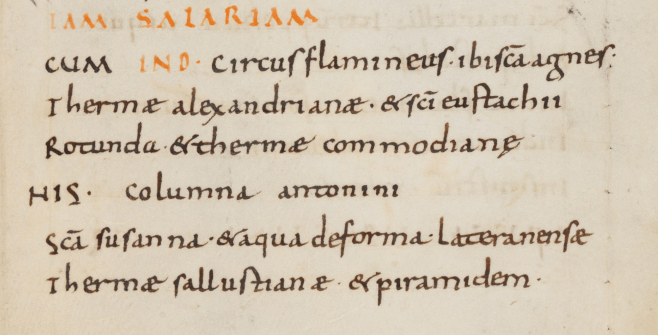 IAM SALARIAM
CUM IND· Circus flamineus· ibi scā agnes:
Thermæ alexandrianæ· & sci eustachii
Rotunda· & thermæ commodianę
HIS· Columna antonini
Scā susanna· & aqua deforma· Lateranensæ
Thermæ sallustianæ· & piramidem·